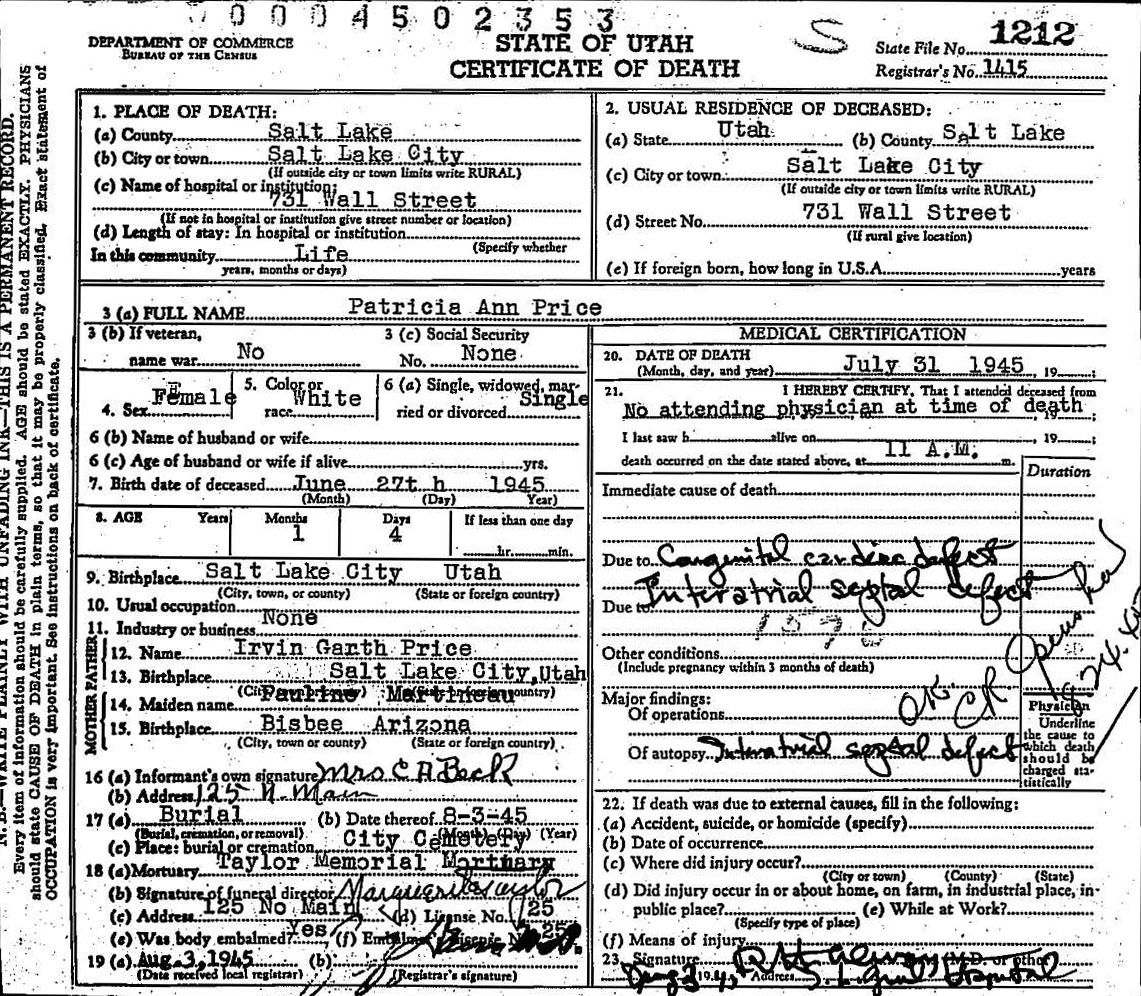 0 0 0 4 5 0 2 3 5 3
S
1212
DEPARTMENT OF COMMERCE
BUREAU OF THE CENSUS
STATE OF UTAH
CERTIFICATE OF DEATH
State File No.
Registrar's No. 1415
N. B.—WRITE PLAINLY WITH UNFADING INK—THIS IS A PERMANENT RECORD.
Every item of information should be carefully supplied. AGE should be stated EXACTLY. PHYSICIANS
should state CAUSE OF DEATH in plain terms, so that it may be properly classified. Exact statement of
OCCUPATION is very important. See instructions on back of certificate.
1. PLACE OF DEATH:
(a) County Salt Lake
(b) City or town Salt Lake City
(If outside city or town limits write RURAL)
(c) Name of hospital or institution:
731 Wall Street
(If not in hospital or institution give street number or location)
(d) Length of stay: In hospital or institution
(Specify whether
In this community Life
years, months or days)
2. USUAL RESIDENCE OF DECEASED:
(a) State Utah (b) County Salt Lake
(c) City or town Salt Lake City
(If outside city or town limits write RURAL)
(d) Street No. 731 Wall Street
(If rural give location)
(e) If foreign born, how long in U.S.A. years
3 (a) FULL NAME Patricia Ann Price
3 (b) If veteran, 3 (c) Social Security
name war No No. None
4. Sex Female 5. Color or race White 6 (a) Single, widowed, married or divorced Single
6 (b) Name of husband or wife
6 (c) Age of husband or wife if alive yrs.
7. Birth date of deceased June 27t h 1945
(Month) (Day) Year)
8. AGE Years Months Days If less than one day
1 4
hr. min.
9. Birthplace Salt Lake City Utah
(City, town, or county) (State or foreign country)
10. Usual occupation None
11. Industry or business
FATHER
12. Name Irvin Garth Price
13. Birthplace Salt Lake City, Utah
(City, town or county) (State or foreign country)
MOTHER
14. Maiden name Pauline Martineau
15. Birthplace Bisbee Arizona
(City, town or county) (State or foreign country)
16 (a) Informant's own signature Mrs C A Beck
(b) Address 125 N. Main
17 (a) Burial (b) Date thereof 8-3-45
(Burial, cremation, or removal) (Month) (Day) (Year)
(c) Place: burial or cremation City Cemetery
18 (a) Mortuary Taylor Memorial Mortuary
(b) Signature of funeral director Marguerite Taylor
(c) Address 125 No Main (d) License No. 125
(e) Was body embalmed? Yes (f) Embalmer License No.
19 (a) Aug. 3, 1945 (b)
(Date received local registrar) (Registrar's signature)
MEDICAL CERTIFICATION
20. DATE OF DEATH
(Month, day, and year) July 31 1945, 19
21. I HEREBY CERTIFY, That I attended deceased from
No attending physician at time of death
I last saw h alive on , 19
death occurred on the date stated above, at 11 A.M. m.
Duration
Immediate cause of death
Due to Congenital cardiac defect
Interatrial septal defect
Due to
Other conditions
(Include pregnancy within 3 months of death)
Major findings:
Of operations
OK CR
Of autopsy Interatrial septal defect
Physician
Underline
the cause to
which death
should be
charged sta-
tistically
22. If death was due to external causes, fill in the following:
(a) Accident, suicide, or homicide (specify)
(b) Date of occurrence
(c) Where did injury occur?
(City or town) (County) (State)
(d) Did injury occur in or about home, on farm, in industrial place, in
public place? (e) While at Work?
(Specify type of place)
(f) Means of injury
23. Signature (M.D. or other)
Aug 3 19 45 Address S. L. Genl Hospital